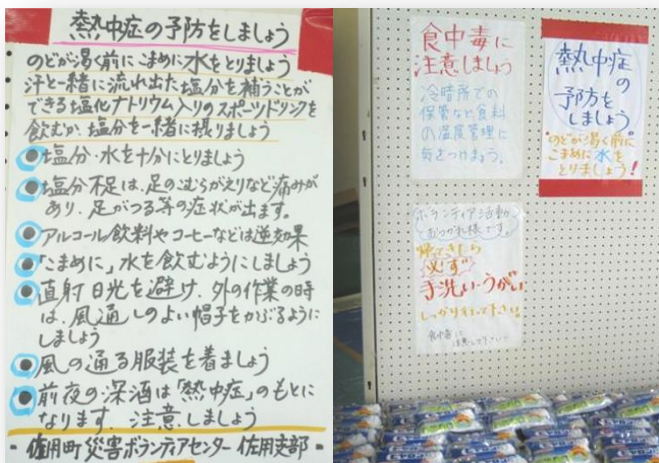 熱中症の予防をしましょう
のどが渇く前にこまめに水をとりましょう
汗と一緒に流れ出た塩分を補うことが
できる塩化ナトリウム入りのスポーツドリンクを
飲むか、塩分を一緒に摂りましょう
●塩分・水を十分にとりましょう
●塩分不足は、足のこむらがえりなど痛みが
あり、足がつる等の症状が出ます。
●アルコール飲料やコーヒーなどは逆効果
●「こまめに」水を飲むようにしましょう
●直射日光を避け、外の作業の時
は、風通しのよい帽子をかぶるように
しましょう
●風の通る服装を着ましょう
●前夜の深酒は「熱中症」のもとに
なります。注意しましょう
佐用町災害ボランティアセンター 佐用支部
食中毒に
注意しましょう
冷暗所での
保管など食料
の温度管理に
気をつけましょう。
熱中症
の
予防を
しましょう
のどが渇く前に
こまめに水を
とりましょう!
ボランティア活動
おつかれ様です。
帰ってきたら
必ず
手洗い・うがい
しっかり行って下さい。
食中毒に
注意して下さい!!